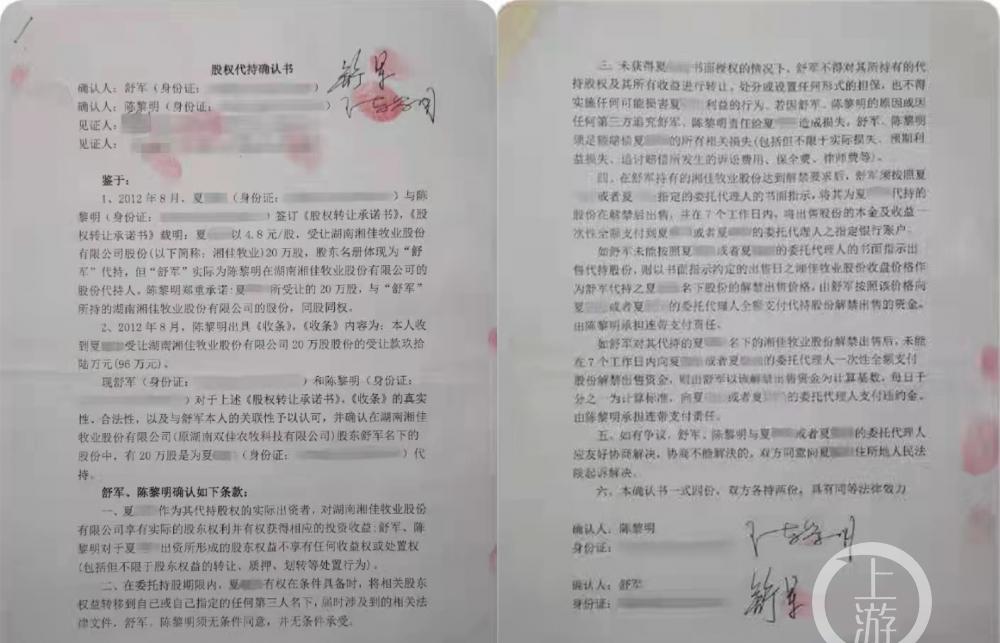 股权代持确认书
确认人：舒军（身份证：）
确认人：陈黎明（身份证：）
见证人：
见证人：
舒军
陈黎明
鉴于：
1、2012年8月，夏（身份证：）与陈
黎明（身份证：）签订《股权转让承诺书》，《股
权转让承诺书》载明：夏以4.8元/股，受让湖南湘佳牧业股份
有限公司股份（以下简称：湘佳牧业）20万股，股东名册体现为“舒
军”代持，但“舒军”实际为陈黎明在湖南湘佳牧业股份有限公司的
股份代持人。陈黎明郑重承诺：夏所受让的20万股，与“舒军”
所持的湖南湘佳牧业股份有限公司的股份，同股同权。
2、2012年8月，陈黎明出具《收条》，《收条》内容为：本人收
到夏受让湖南湘佳牧业股份有限公司20万股股份的受让款玖拾
陆万元（96万元）。
现舒军（身份证：）和陈黎明（身份证：
）对于上述《股权转让承诺书》，《收条》的真实
性、合法性，以及与舒军本人的关联性予以认可，并确认在湖南湘佳
牧业股份有限公司(原湖南双佳农牧科技有限公司)股东舒军名下的
股份中，有20万股是为夏（身份证：）代
持。
舒军、陈黎明确认如下条款：
一、夏作为其代持股权的实际出资者，对湖南湘佳牧业股份
有限公司享有实际的股东权利并有权获得相应的投资收益；舒军、陈
黎明对于夏出资所形成的股东权益不享有任何收益权或处置权
(包括但不限于股东权益的转让、质押、划转等处置行为)。
二、在委托持股期限内，夏有权在条件具备时，将相关股东
权益转移到自己或自己指定的任何第三人名下，届时涉及到的相关法
律文件，舒军、陈黎明须无条件同意，并无条件承受。
三、未获得夏书面授权的情况下，舒军不得对其所持有的代
持股权及其所有收益进行转让、处分或设置任何形式的担保，也不得
实施任何可能损害夏利益的行为。若因舒军、陈黎明的原因或因
任何第三方追究舒军、陈黎明责任给夏造成损失，舒军、陈黎明
须足额赔偿夏的所有相关损失(包括但不限于实际损失、预期利
益损失、追讨赔偿所发生的诉讼费用、保全费、律师费等)。
四、在舒军持有的湘佳牧业股份达到解禁要求后，舒军须按照夏
或者夏指定的委托代理人的书面指示，将其为夏代持的
股份在解禁后出售，并在7个工作日内，将出售股份的本金及收益一
次性全额支付到夏或者夏的委托代理人之指定银行账户。
如舒军未能按照夏或者夏的委托代理人的书面指示出
售代持股份，则以书面指示约定的出售日之湘佳牧业股份收盘价格作
为舒军代持之夏名下股份的解禁出售价格，由舒军按照该价格向
夏或者夏的委托代理人全额支付代持股份解禁出售的资金。
由陈黎明承担连带支付责任。
如舒军对其代持的夏名下的湘佳牧业股份解禁出售后，未能
在7个工作日内向夏或者夏的委托代理人一次性全额支付
股份解禁出售资金，则由舒军以该解禁出售资金为计算基数，每日千
分之一为计算标准，向夏或者夏的委托代理人支付违约金。
由陈黎明承担连带支付责任。
五、如有争议，舒军、陈黎明与夏或者夏的委托代理人
应友好协商解决，协商不能解决的，双方同意向夏住所地人民法
院起诉解决。
六、本确认书一式四份，双方各持两份，具有同等法律效力
确认人：陈黎明
身份证：
陈黎明
确认人：舒军
身份证：
舒军
上游